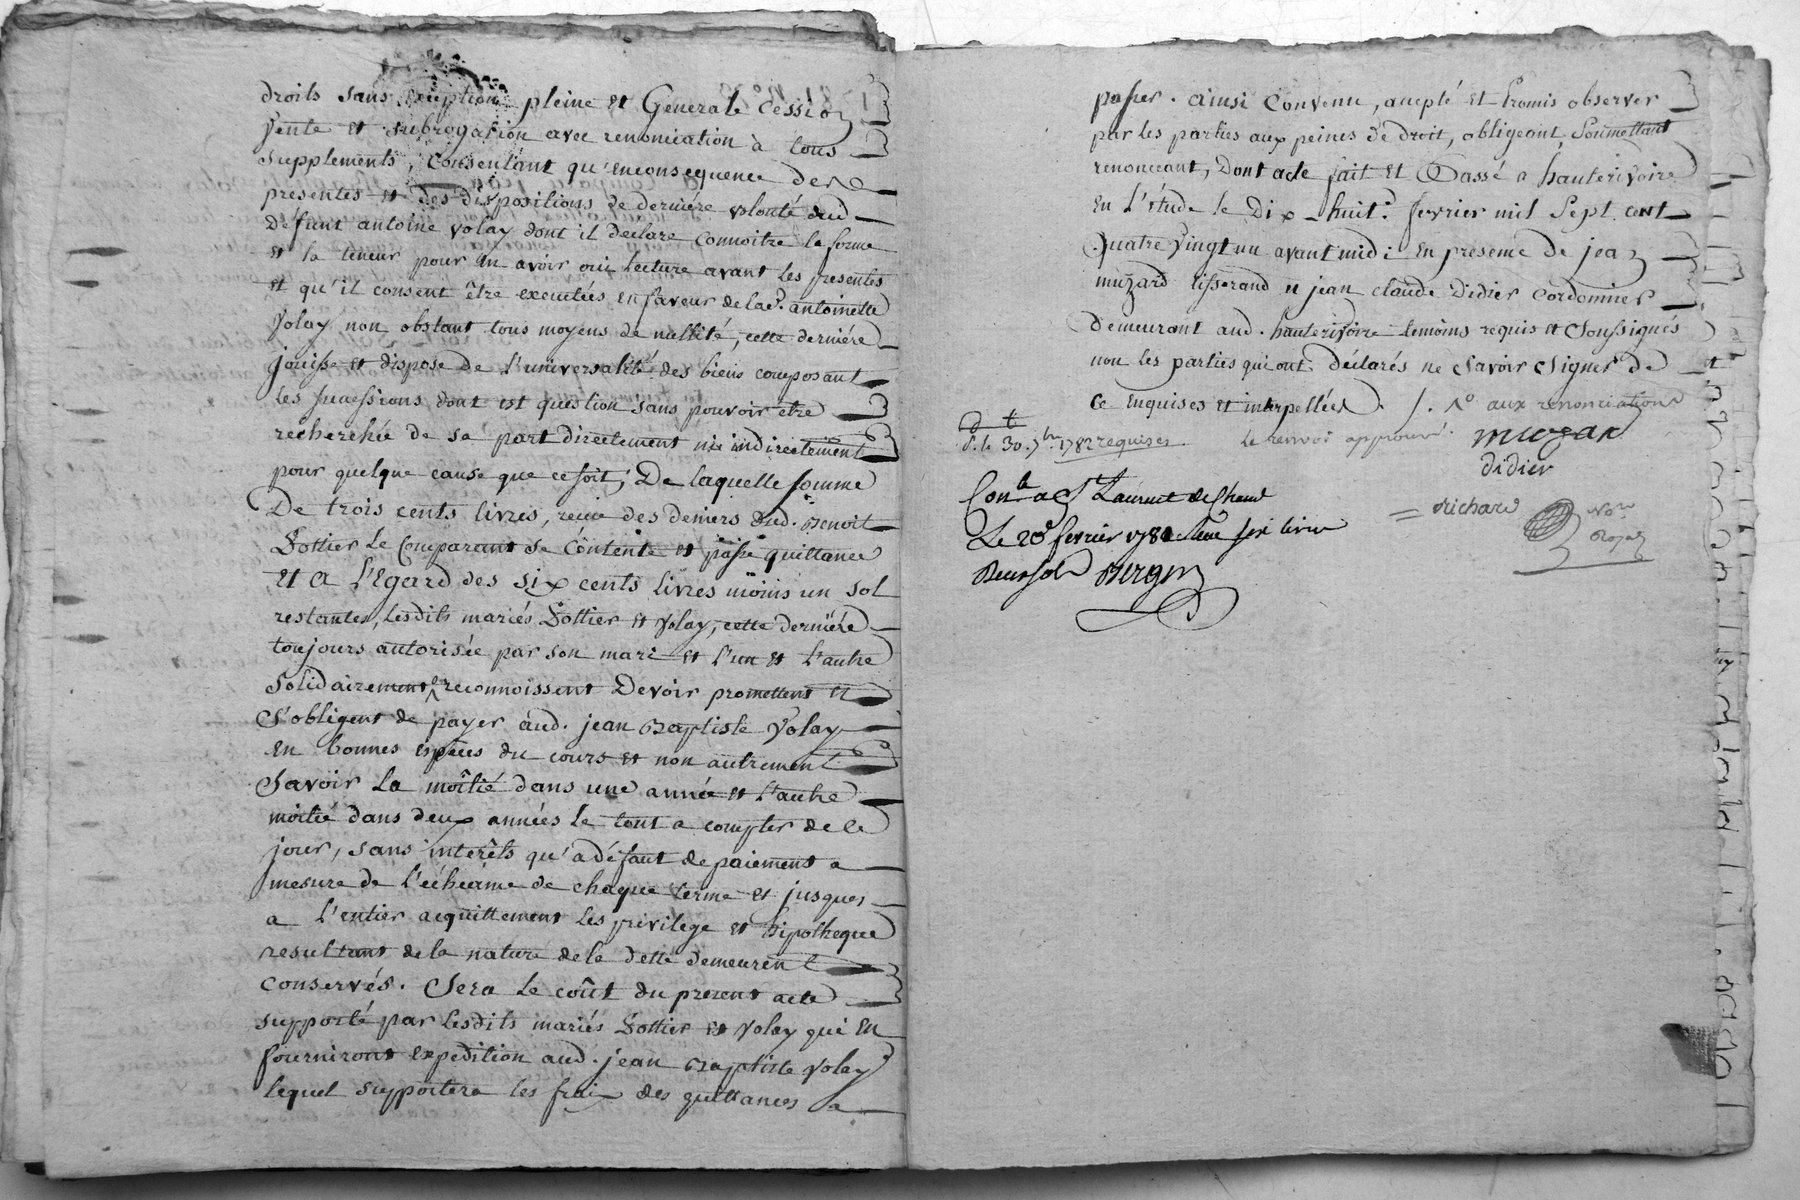 droits sans exception pleine et Generale Cession
Vente et subrogation avec renonciation à tous
supplements, Consentant qu'enconsequence des
presentes et des dispositions de derniere volonté dud
defunt antoine Volay dont il declare connoitre la forme
et la teneur pour en avoir oui lecture avant les presentes
et qu'il consent être executées en faveur de lad. antoinette
Volay non obstant tous moyens de nullité, cette derniére
jouisse et dispose de l'universalité des biens composant
les successions dont est question sans pouvoir etre
recherchée de sa part directement ni indirectement
pour quelque cause que ce soit, De laquelle somme
De trois cents livres, reçue des deniers dud. Benoit
Sottier le Comparant se Contente et passe quittance
et a L'Egard des six cents livres moins un sol
restantes, lesdits mariés Sottier et Volay, cette derniére
toujours autorisée par son mari et l'un et l'autre
solidairement reconnoissent Devoir promettent et
s'obligent de payer aud. jean Baptiste Volay
en bonnes espèces du cours et non autrement
Savoir la moitié dans une année et l'autre
moitié dans deux années le tout a compter de ce
jour, sans interêts qu'a défaut de paiement a
mesure de l'échéame de chaque terme et jusques
a l'entier acquittement les privilege et hipotheque
resultant de la nature de la dette demeurent
conservés. Sera le coût du present acte
supporté par lesdits mariés Sottier et Volay qui en
fourniront expedition aud. jean Baptiste Volay
lequel supportera les fraix des quittances a
passer. ainsi Convenu, accepté et Promis observer
par les parties aux peines de droit, obligeant, Soumettant
renonceant, Dont acte fait et Passé a hauterivoire
en l'étude le Dix-huit. fevrier mil Sept cent
quatre Vingt un avant midi en presence de jean
muzard tisserand et jean claude Didier Cordonnier
Demeurant aud. hauterivoire temoins requis et soussignés
non les parties qui ont déclarés ne Savoir Signer de
ce enquises et interpellées. /. aux renonciations
le renvoi approuvé. muzard
didier
d. le 30. 7bre 1782 requises
Conlé a St Laurent de Cham
Le 20 fevrier 1781 six livres
Richard